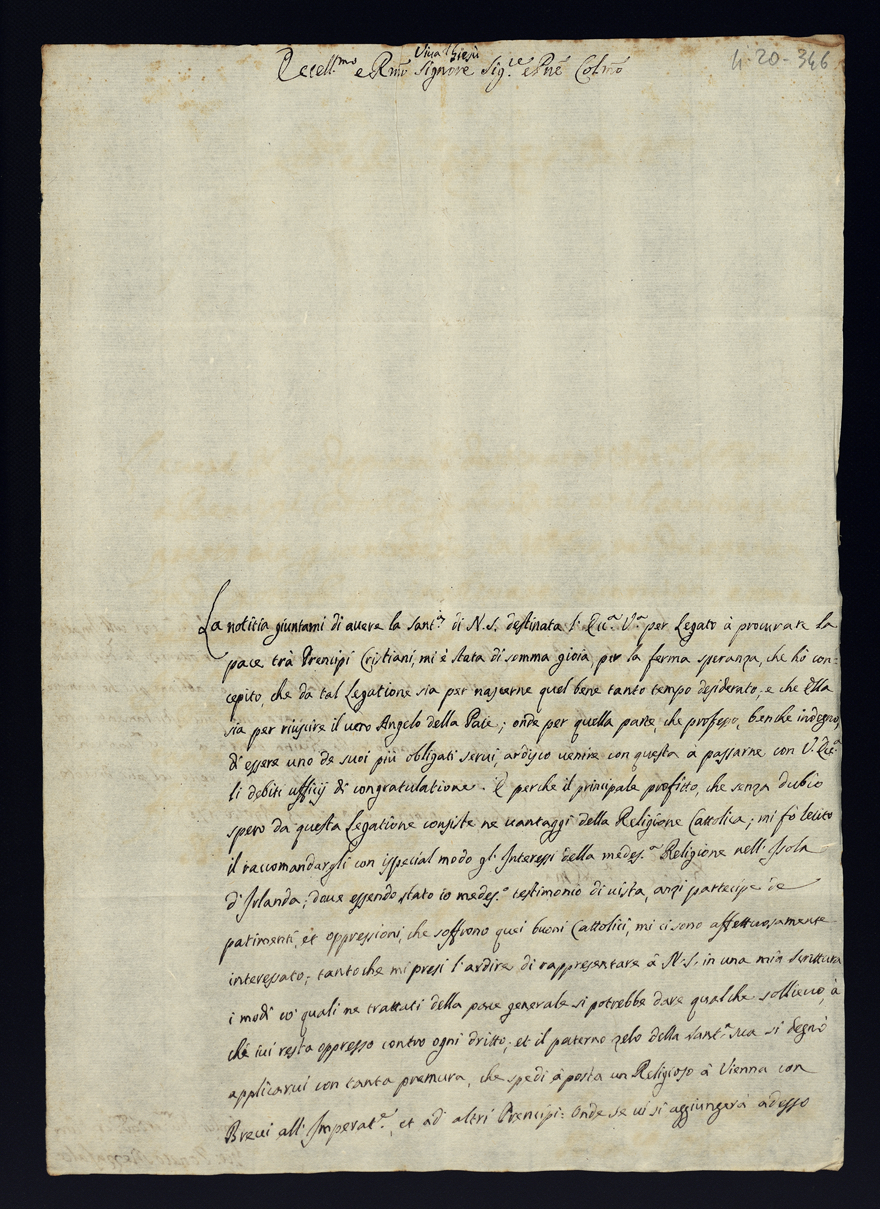 Viva Giesù
Eccell.mo e Rmō Signore Sig.re e Pne Colmō
4-20-346
La notitia giuntami di avere la Sant.tà di N.S. destinata l'Ecc.a V.a per Legato à procurare la
pace trà Prencipi Cristiani, mi è stata di somma gioia, per la ferma speranza, che hò con=
cepito, che da tal Legatione sia per nascerne quel bene tanto tempo desiderato, e che Ella
sia per riuscire il vero Angelo della Pace; onde per quella parte, che professo, benche indegno,
di essere uno de suoi più obligati servi, ardisco venire con questa a passarne con V. Ecc.a
li debiti ufficij di congratulatione. E perche il principale profitto, che senza dubio
spero da questa Legatione consiste ne vantaggi della Religione Cattolica; mi fò lecito
il raccomandargli con ispecial modo gl'Interessi della medes.a Religione nell'Isola
d'Irlanda; dove essendo stato io medes.o testimonio di vista, anzi partecipe de
patimenti, et oppressioni, che soffrono quei buoni Cattolici, mi ci sono affettuosamente
interessato; tanto che mi presi l'ardire di rappresentare à N.S. in una mia scrittura
i modi co' quali ne trattati della pace generale si potrebbe dare qualche sollievo, à
chi ivi resta oppresso contro ogni dritto; et il paterno zelo della Sant.à sua si degnò
applicarvi con tanta premura, che spedì à posta un Religioso à Vienna con
Brevi all'Imperat.e, et ad altri Prencipi: Onde se vi si aggiungerà adesso